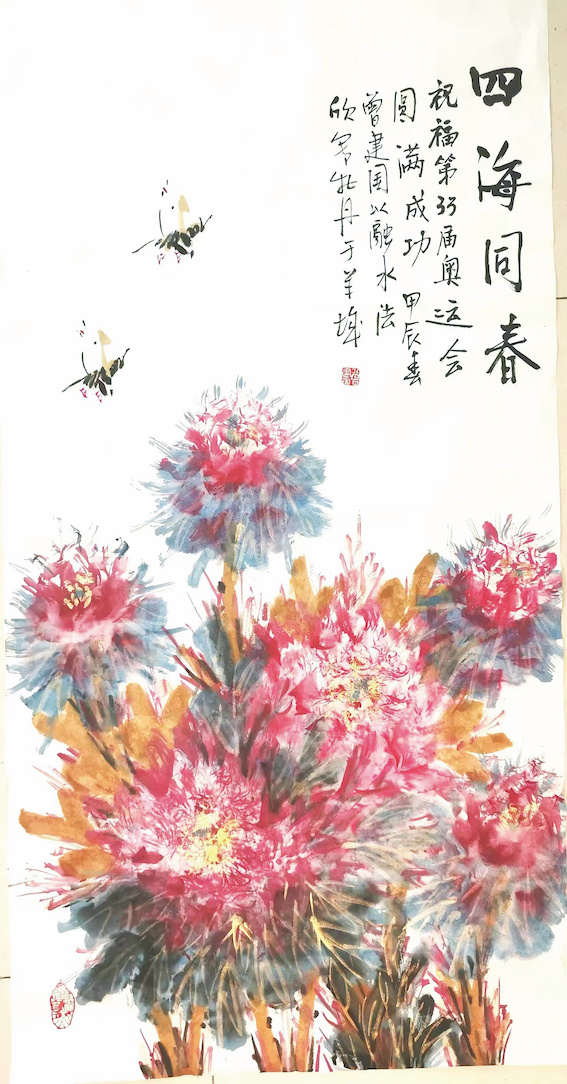 四海同春
祝福第33届奥运会
圆满成功 甲辰春
曾建国以融水法
欣写牡丹于羊城